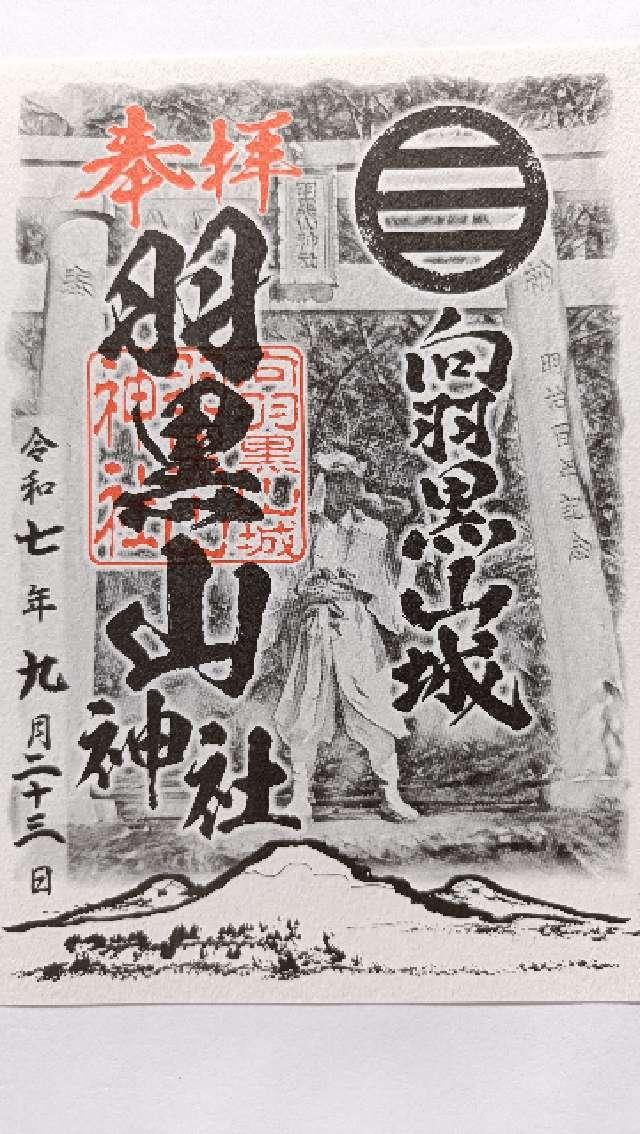 向羽黒山城
奉拝
羽黒山神社
向羽黒山城
神社
令和七年九月二十三日